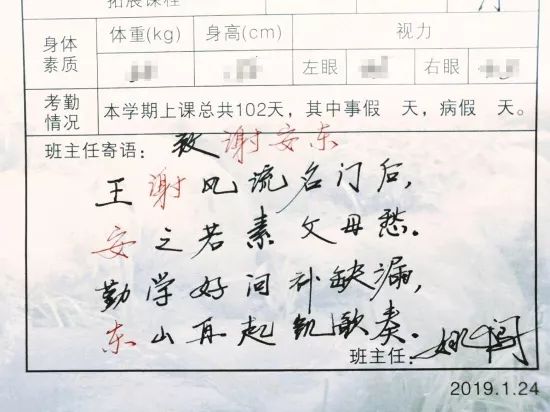 拓展课程
身体素质 体重(kg) 身高(cm) 视力
左眼 右眼
考勤情况 本学期上课总共102天，其中事假 天，病假 天。
班主任寄语：致谢安东
王谢风流名门后，
安之若素父母愁。
勤学好问补缺漏，
东山再起凯歌奏。
班主任：姚闯
2019.1.24